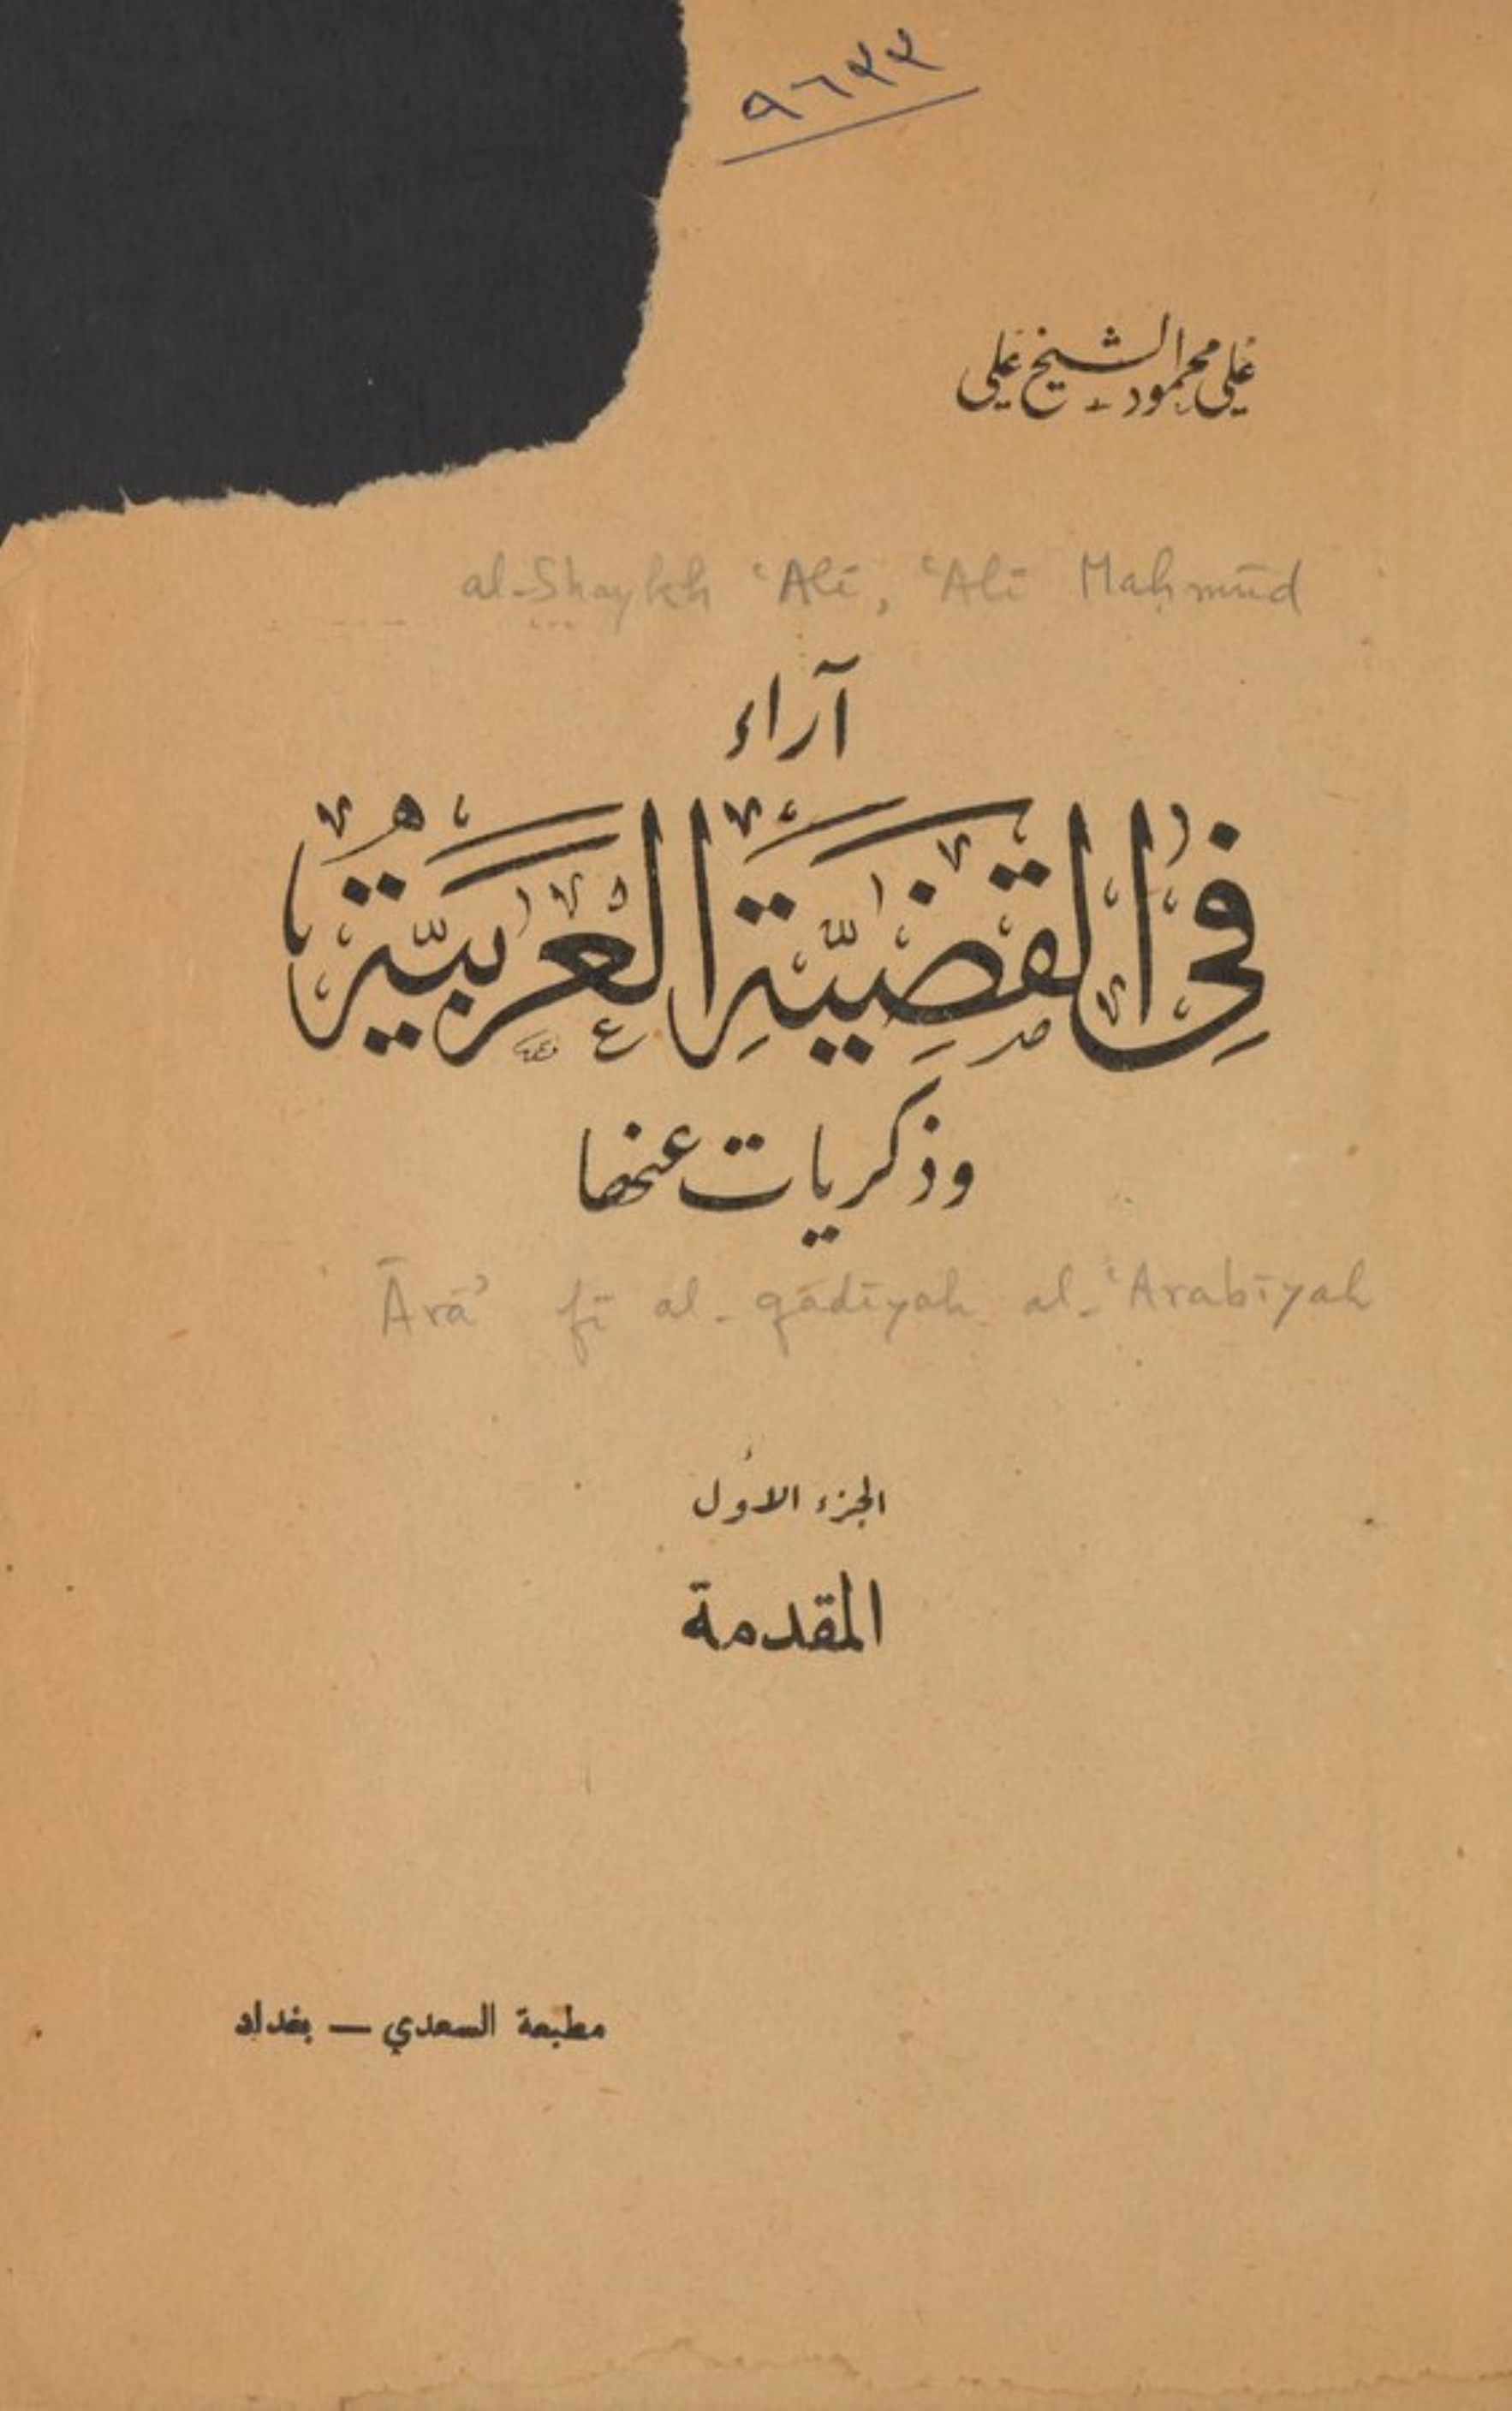 ٩٦٢٢
علي محمود الشيخ علي
al-Shaykh ʿAlī, ʿAlī Maḥmūd
آراء
في القضية العربية
وذكريات عنها
Ārāʾ fī al-qadīyah al-ʿArabīyah
الجزء الأول
المقدمة
مطبعة السعدي — بغداد